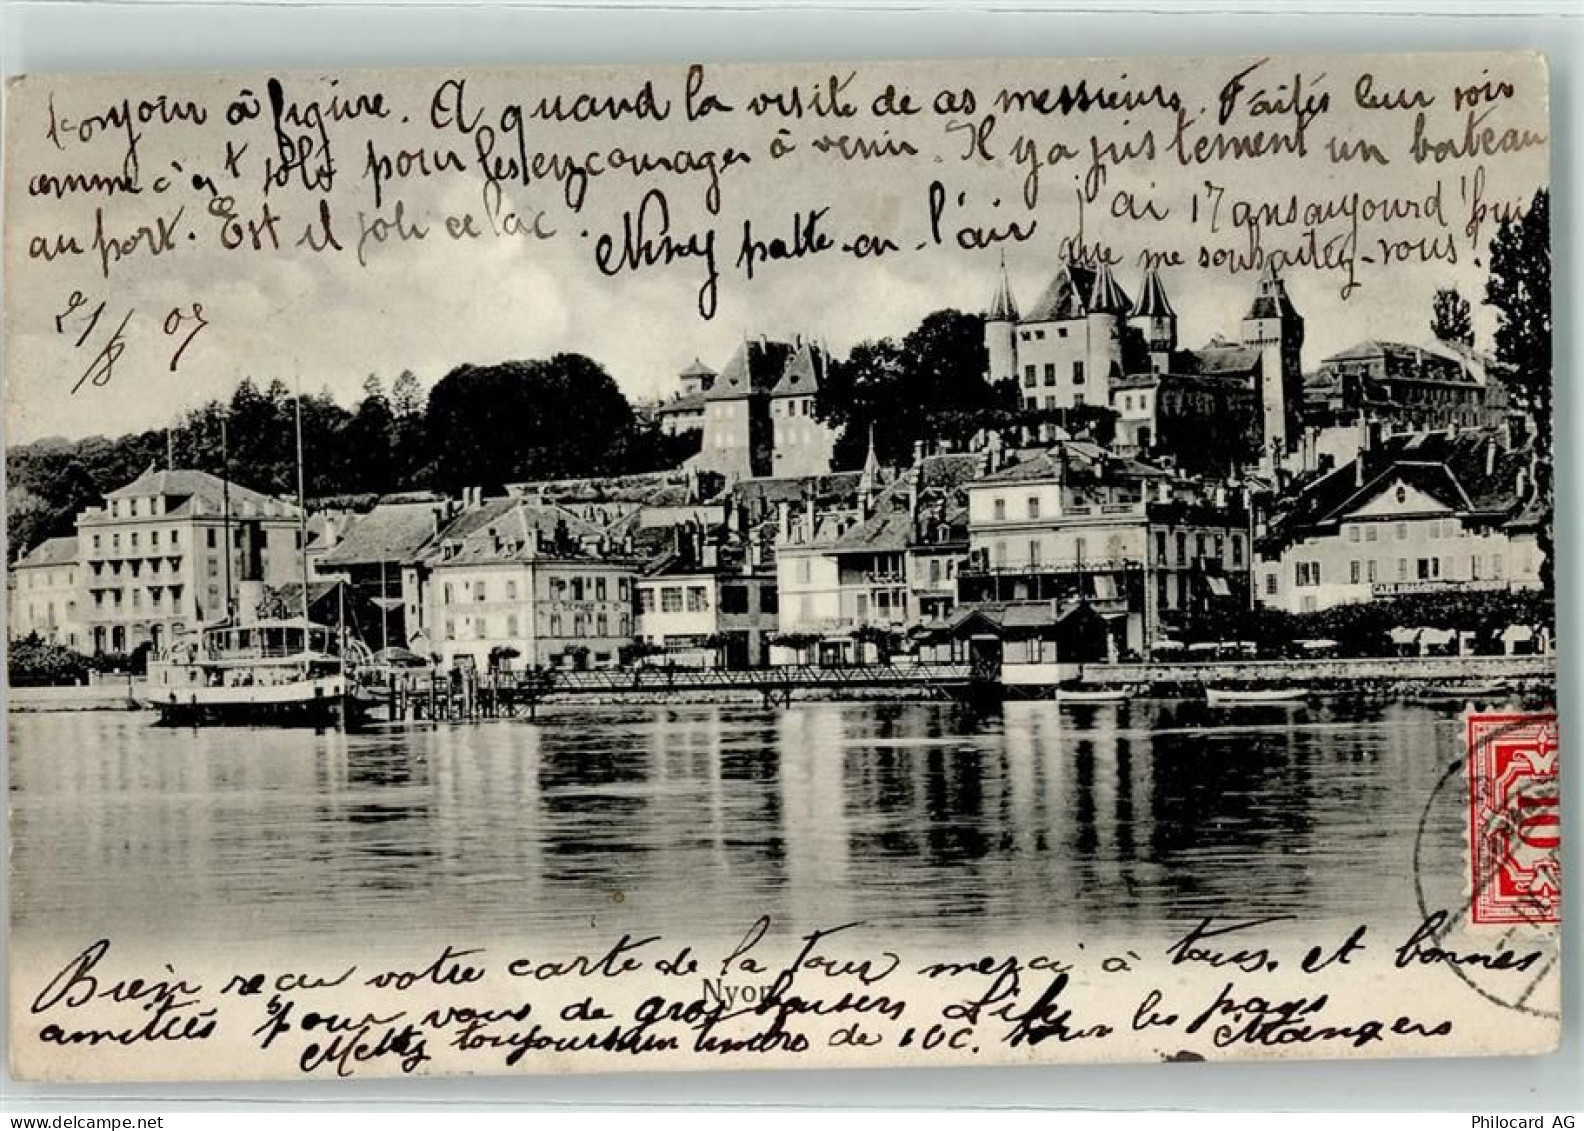 Bonjour à figure. A quand la visite de ces messieurs. Faites leur voir
comme c'est joli pour les encourager à venir. Il y a justement un bateau
au port. Est il joli ce lac ? Niny patte-en-l'air j'ai 17 ans aujourd'hui
que me souhaitez-vous?
21/8 05
10
Nyon
Bien reçu votre carte de la tour merci à tous. et bonnes
amitiés pour vous de gros baisers Lily
Mettez toujours un timbre de 10c. pour les pays
Etrangers
Philocard AG